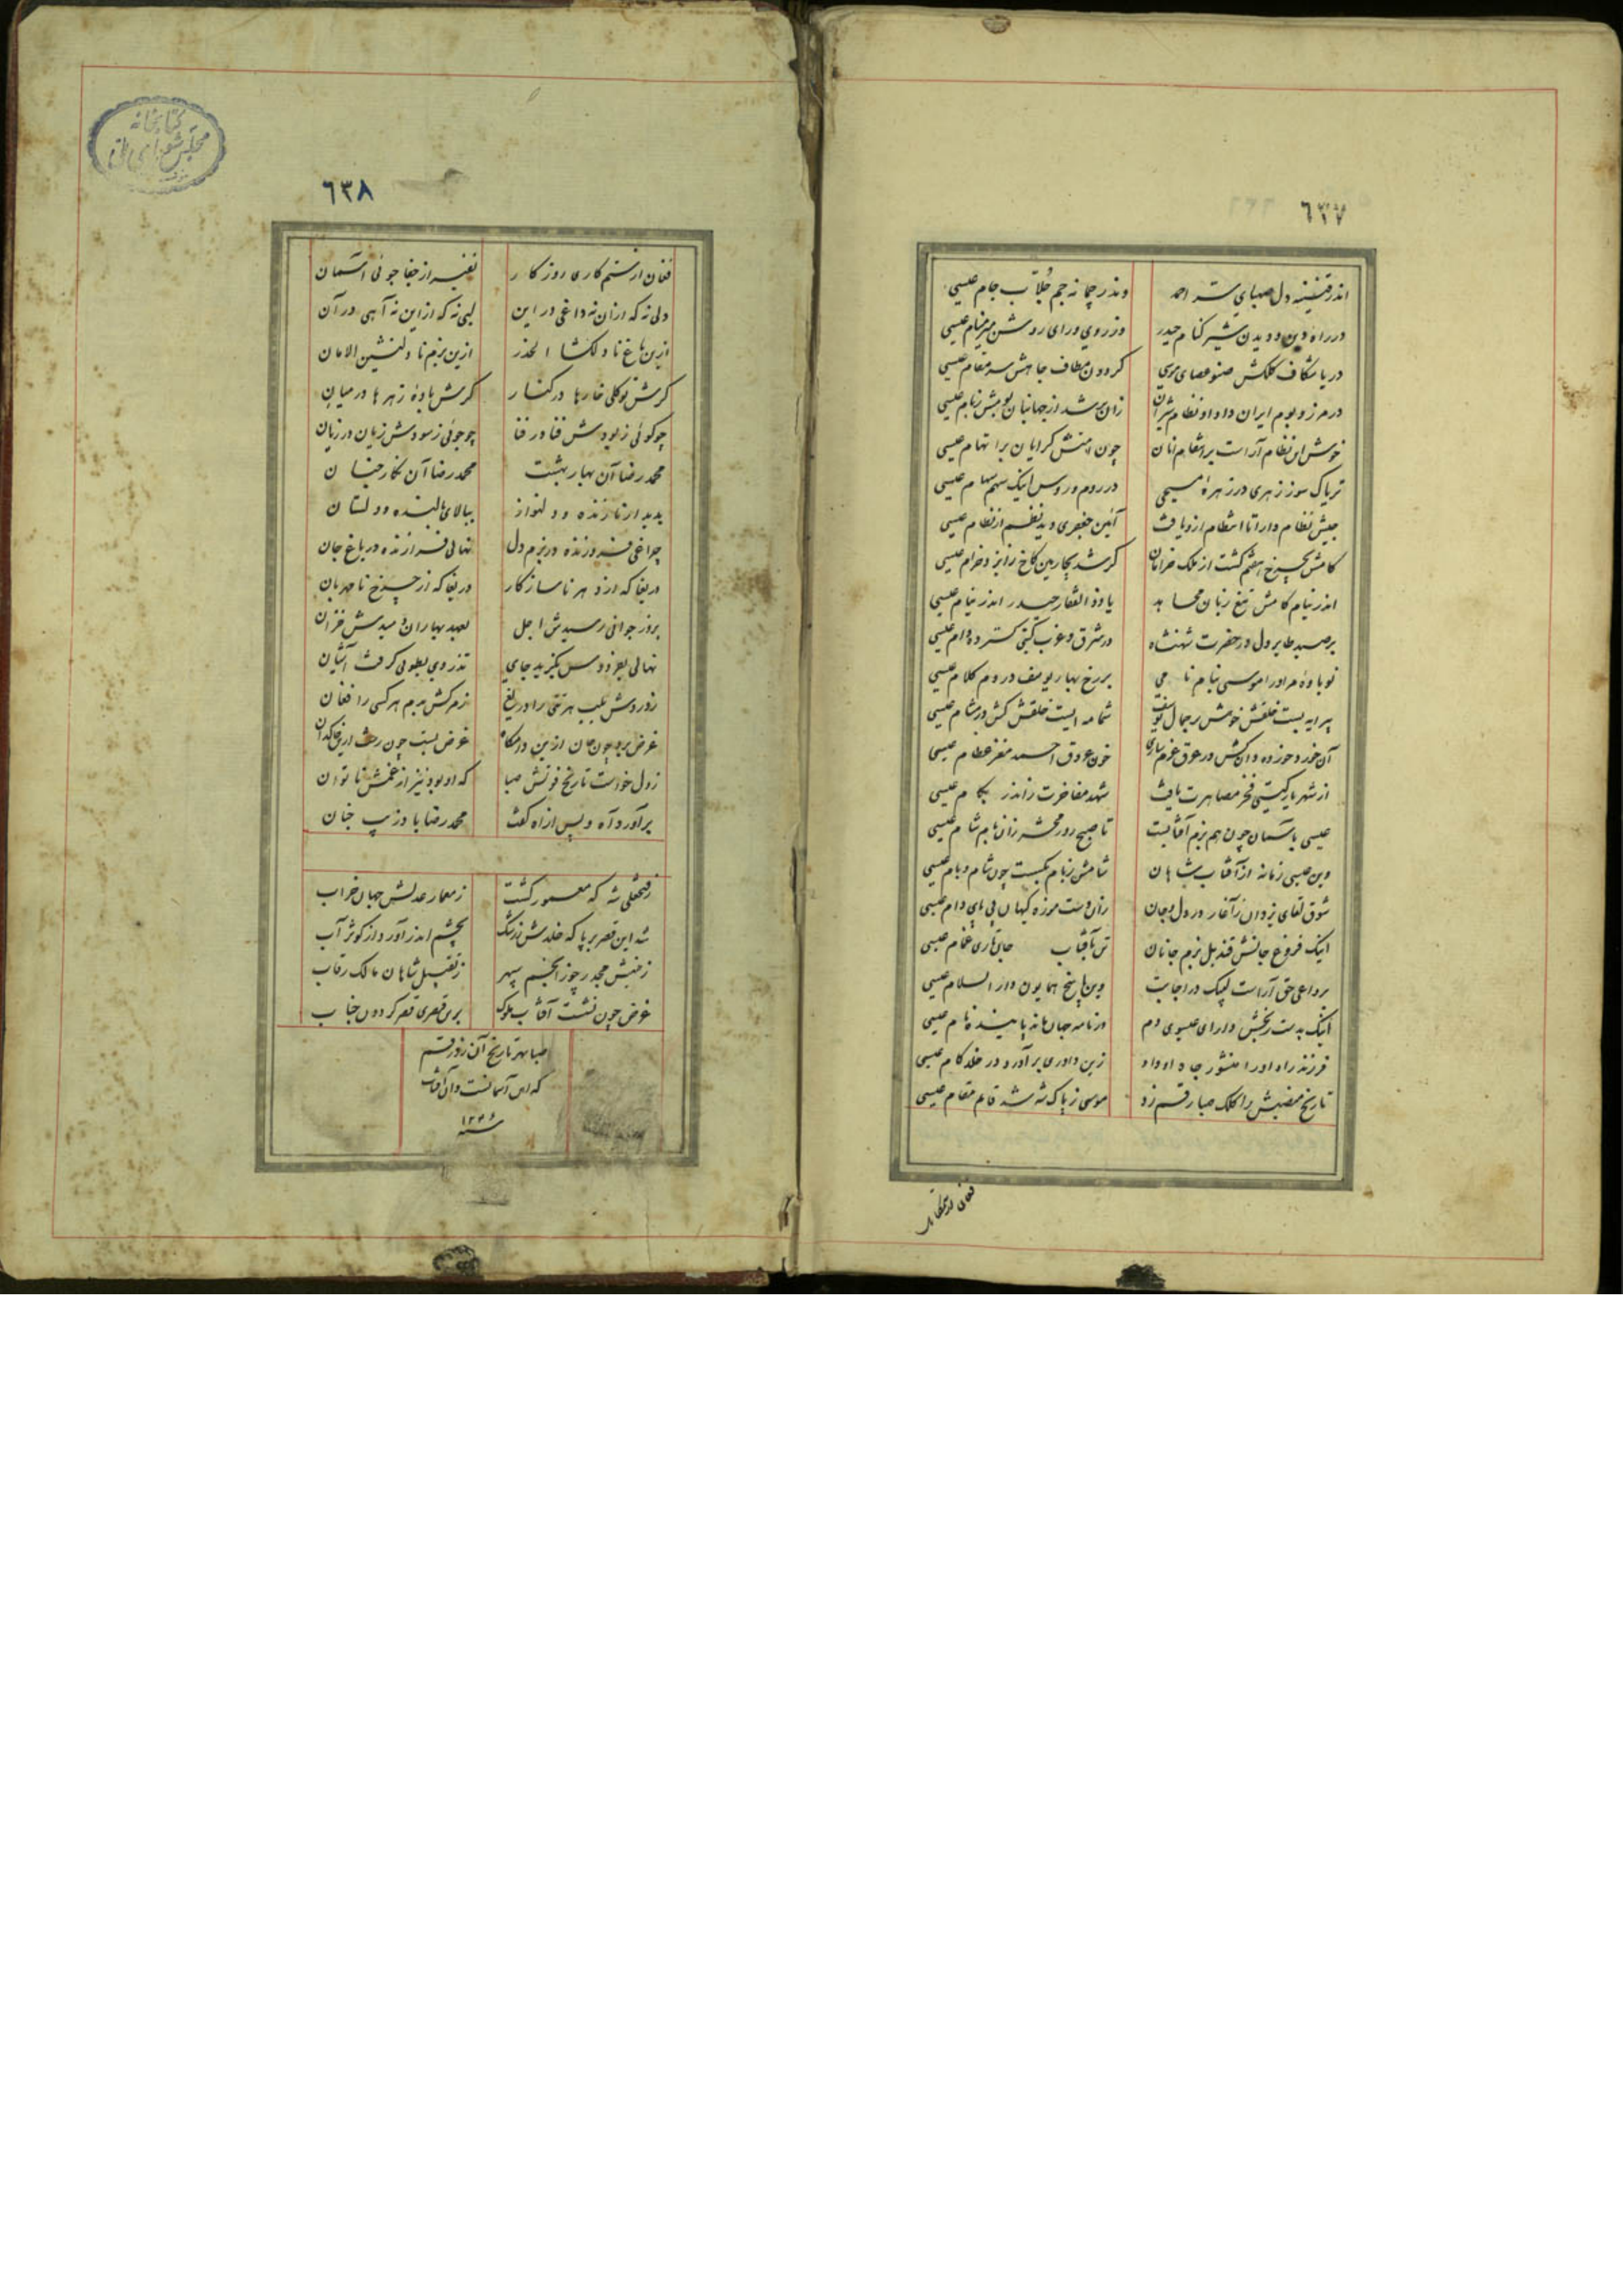 ٦٣٧
اندر قنینه دل صهبای سر احمد وندر چمانه جم جلاب جام عیسی
در راه دین و دیدن شیر کنام حیدر وز روی و رای روشن عیسی
دریا شکاف کلکش صنو عصای موسی گردون مطاف جاهش عیسی
در مرز و بوم ایران داد او نظام شیران زان عیسی
خوش این نظام آراست بر انتقام چون عیسی
تریاک سوز زهری در زهره مسیحی در روم و روس اینک سهم سهام عیسی
جیش نظام دارا تا انتظام ازو یافت آئین جعفری دید نظم از نظام عیسی
کامش بچرخ هفتم گشت از ملک خرامان گر شد بچارمین کاخ خرام عیسی
اندر نیام کامش تیغ زبان مجاهد یا ذوالفقار حیدر اندر نیام عیسی
بر صید طایر دل در حضرت شهنشاه در شرق و غرب گیتی گسترده دام عیسی
نوباوه مر او را موسی بنام نامی بر رخ بهار یوسف در دم کلام عیسی
پیرایه بست خلقش خوش بر جمال یوسف شمامه ایست خلقش کش در مشام عیسی
خون عروق احمد مغز عظام عیسی
از شهریار گیتی فخر مصاهرت یافت شهد مفاخرت زاندر بکام عیسی
عیسی باسمان چون هم بزم آفتابست تا صبح روز محشر زان بام شام عیسی
وین عیسی زمانه از آفتاب شاهان شامش ز بام نگسست چون شام و بام عیسی
شوق لقای یزدان ز آغاز در دل و جان عیسی
اینک فروغ جانش قندیل بزم جانان عیسی
بر داعی حق آراست لبیک در اجابت وین پاسخ همایون دار السلام عیسی
اینک بدست بخشش دارای عیسوی دم در نامه جهان ماند پاینده نام عیسی
فرزند راد او را منشور جاه او داد زین داوری برآورد در خلد کام عیسی
تاریخ منصبش را کلک صبا رقم زد موسی ز پاک شه شد قایم مقام عیسی
فغان از ستمکاری
٦٣٨
فغان از ستم کاری روزکار نفیر از جفا جوئی آسمان
دلی نه که از آن نه داغی در این لبی نه که از این نه آهی در آن
ازین باغ نا دلکشا الحذر ازین بزم نا دلنشین الامان
گرش نو گلی خارها در کنار گرش باده زهرها در میان
چو گوئی ز بودش فنا در فنا چو جوئی ز سودش زیان در زیان
محمد رضا آن بهار بهشت محمد رضا آن نگار جنان
بدیدار نازنده و دلنواز ببالای بالنده و دلستان
چراغی فروزنده در بزم دل نهالی فرازنده در باغ جان
دریغا که از دهر ناسازکار دریغا که از چرخ نامهربان
بروز جوانی رسیدش اجل بعهد بهاران دمیدش خزان
نهالی بفردوس بگزید جای تذروی بطوبی گرفت آشیان
ز دردش بلب هر تنی را دریغ ز مرگش بدم هر کسی را فغان
غرض برد چون جان ازین دامگاه غرض بست چون رخت ازین خاکدان
ز دل خواست تاریخ فوتش صبا که او بود نیز از غمش ناتوان
برآورد آه و پس از آه گفت محمد رضا باد زیب جنان
ز فتحعلی شه که معمور گشت ز معمار عدلش جهان خراب
شد این قصر بر پا که خلدش ز رشک بچشم اندر آورد از کوثر آب
ز تقبیل شاهان مالک رقاب
غرض چون نشست آفتاب ملوک برین قصری قصر گردون جناب
صبا بهر تاریخ آن زد رقم
که این آسمانست و آن آفتاب
سنه ۱۲۲۶
کتابخانه
مجلس شورای ملی